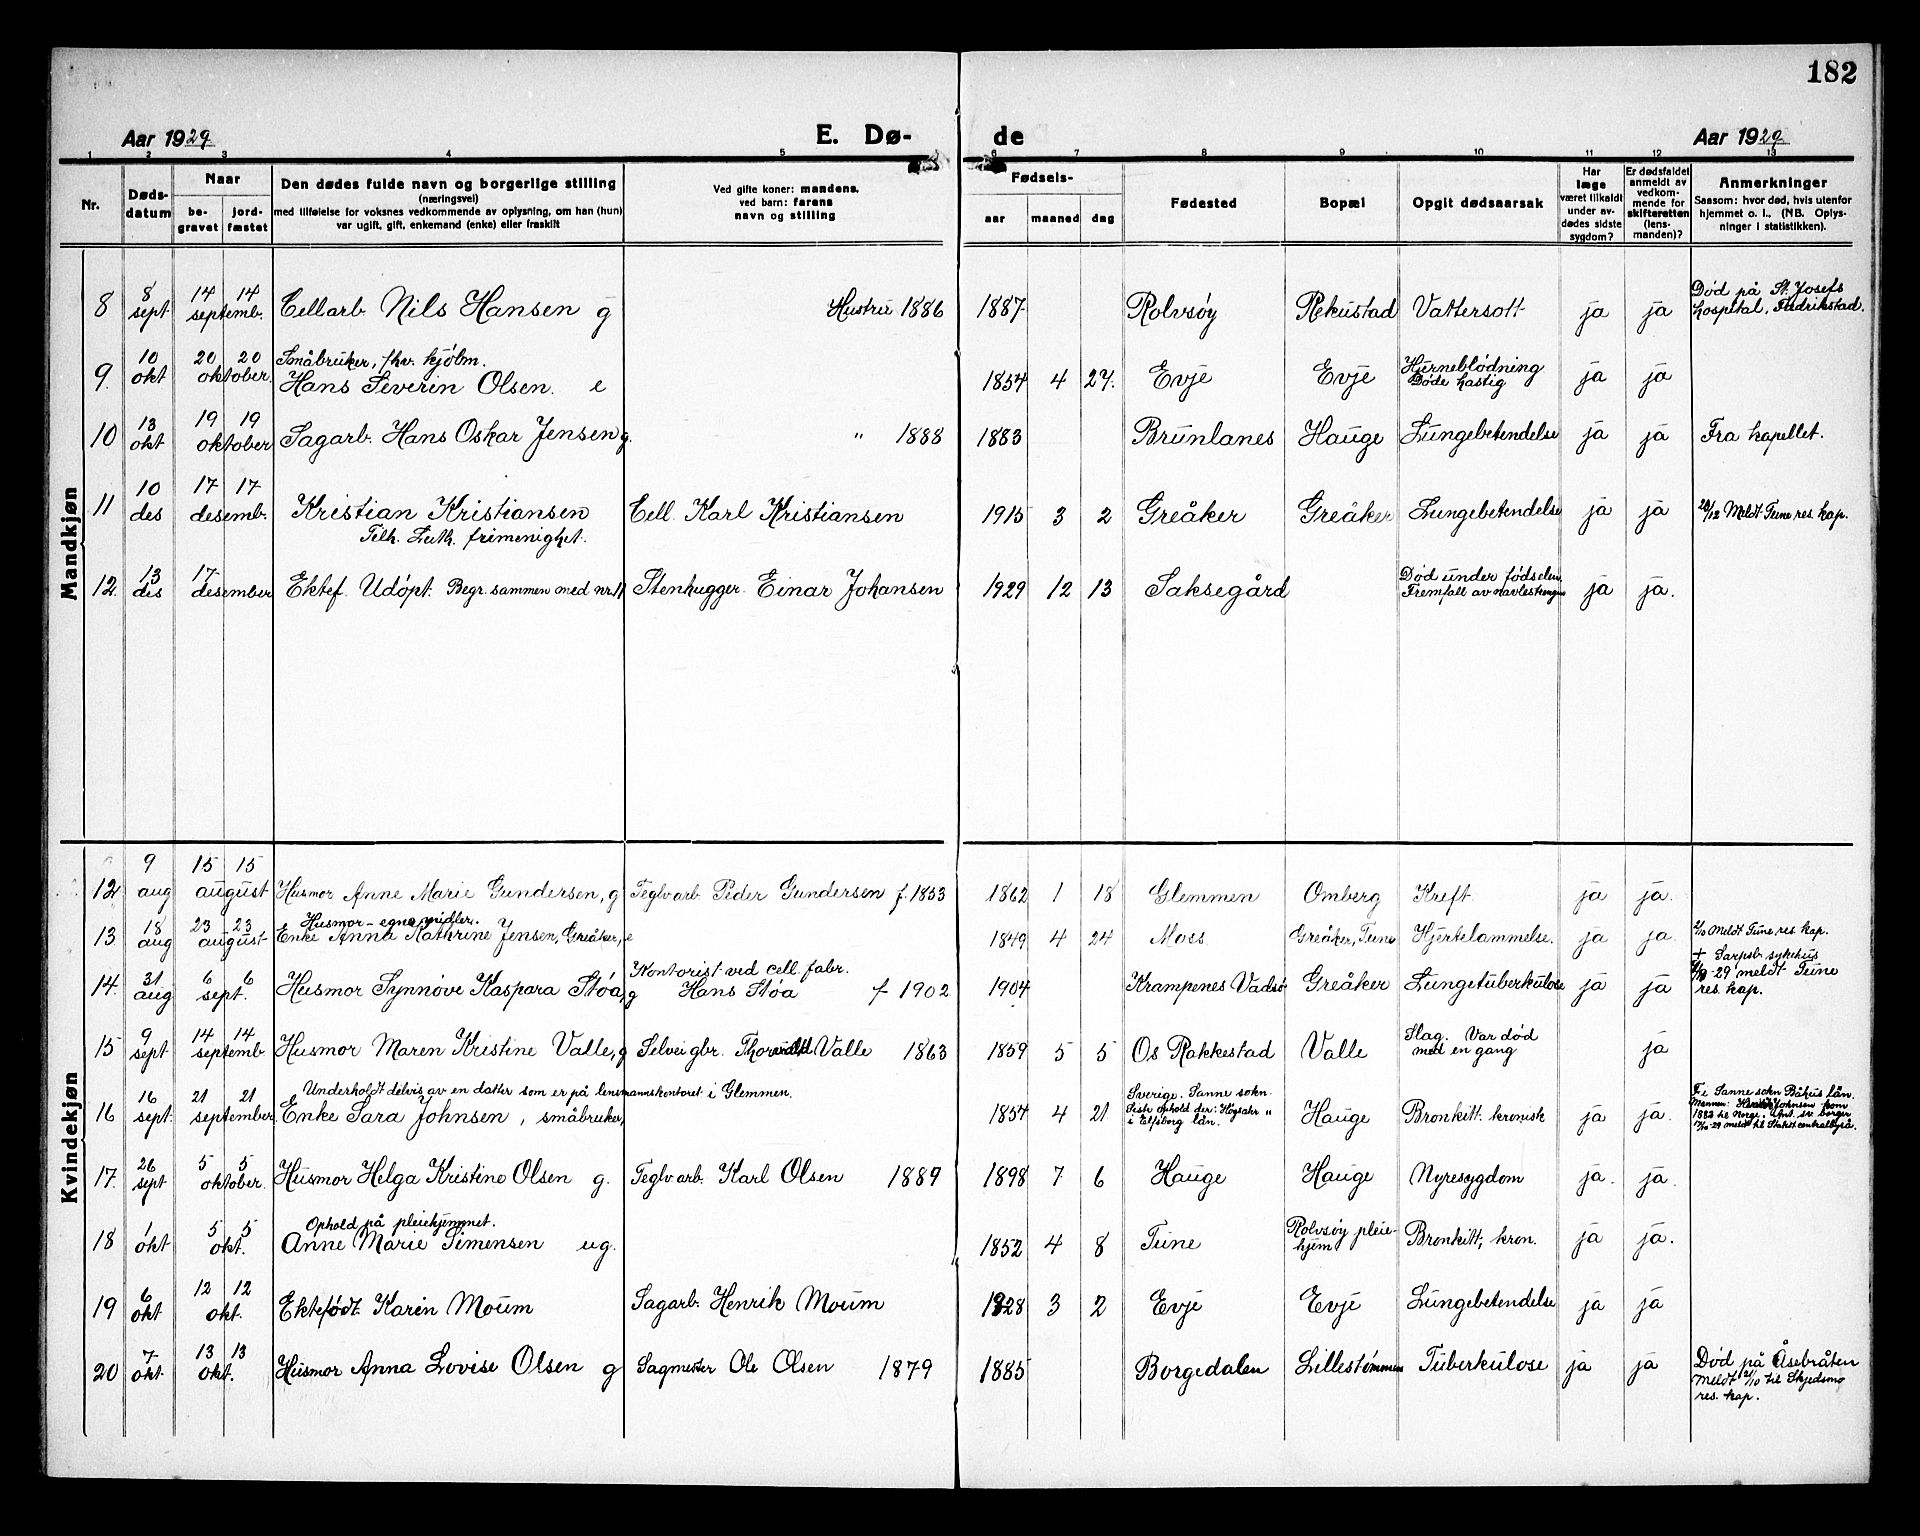 182
Aar 1929. E. Dø- de Aar 1929.
1 2 3 4 5 6 7 8 9 10 11 12 13
Nr. Døds-datum Naar be-gravet jord-fæstet Den dødes fulde navn og borgerlige stilling (næringsvei) med tilføielse for voksnes vedkommende av oplysning, om han (hun) var ugift, gift, enkemand (enke) eller fraskilt Ved gifte koner: mandens, ved barn: farens navn og stilling Fødsels- aar maaned dag Fødested Bopæl Opgit dødsaarsak Har læge været tilkaldt under av-dødes sidste sygdom? Er dødsfaldet anmeldt av vedkom-mende for skifteretten (lens-manden)? Anmerkninger Saasom: hvor død, hvis utenfor hjemmet o. l., (NB. Oplys-ninger i statistikken).
Mandkjøn
8 8 sept 14 14 septemb. Cellarb. Nils Hansen g Hustru 1886 1887 Rolvsøy Rekustad Vattersott ja ja Død på St. Josefs hospital, Fredrikstad.
9. 10 okt 20 20 oktober. Småbruker, fhv. kjølm. Hans Severin Olsen. e 1854 4 27. Evje Evje Hjerneblødning Døde hastig ja ja
10 13 okt 19 19 oktober Sagarb. Hans Oskar Jensen g. " 1888 1883 Brunlanes Hauge Lungebetendelse ja ja Fra kapellet.
11 10 des 17 17 desemb. Kristian Kristiansen Tilh. Luth. frimenighet. Cell. Karl Kristiansen 1915 3 2 Greåker Greåker Lungebetendelse ja ja 20/12 Meldt Tune res. kap.
12. 13 des 17 desember Ektef. Udøpt. Begr. sammen med nr. 11 Stenhugger. Einar Johansen 1929 12 13 Saksegård Død under fødselen. Fremfall av navlestrengen ja ja.
Kvindekjøn
12. 9 aug 15 15 august Husmor Anne Marie Gundersen, g Teglv.arb. Peder Gundersen f. 1853 1862 1 18 Glemmen Omberg Kreft. ja ja.
13 18 aug 23 23 august Husmor - egne midler. Enke Anna Kathrine Jensen, Greåker, e 1849 4 24 Moss Greåker, Tune Hjertelammelse. ja ja. Meldt Tune res. kap.
14. 31 aug 6 6 sept. Husmor Synnøve Kaspara Støa, g Kontorist ved cell. fabr. Hans Støa f 1902 1904 Krampenes Vadsø Greåker Lungetuberkulose ja ja + Sarpsb. sykehus -29 meldt Tune res. kap.
15 9 sept 14 14 septemb Husmor Maren Kristine Valle, g Selveigbr. Thorvald Valle 1863 1859 5 5 Os Rakkestad Valle Slag. Var død med en gang ja
16 16 sept. 21 21 september. Underholdt delvis av en datter som er på lensmannskontoret i Glemmen. Enke Sara Johnsen, småbruker, 1854 4 21 Sverige. Sanne sokn. Sist ophold der: Högsäter " i Elfsborg län. Hauge Bronkitt. kronisk ja ja. F. i Sanne sokn Båhus län. Mannen: Johnsen kom 1882 til Norge. Ant. sv. borger -29 meldt til Statist. centralbyrå.
17. 26 sept 5 5 oktober. Husmor Helga Kristine Olsen g. Teglv.arb. Karl Olsen 1889 1898 7 6 Hauge Hauge Nyresygdom ja. ja.
18 1 okt 5 5 okt. Ophold på pleiehjemmet. Anne Marie Simensen ug. 1852 4 8 Tune Rolvsøy pleie-hjem Bronkitt, kron. ja ja.
19 6 okt 12 12 okt. Ektefødt Karin Moum Sagarb. Henrik Moum 1928 3 2 Evje Evje Lungebetendelse ja ja
20 7 okt. 13 13 okt. Husmor Anna Lovise Olsen g Sagmester Ole Olsen 1879 1885 Borgedalen Lillestømmen Tuberkulose ja ja Død på Åsebråten Meldt 21/10 til Skjedsmo res. kap.